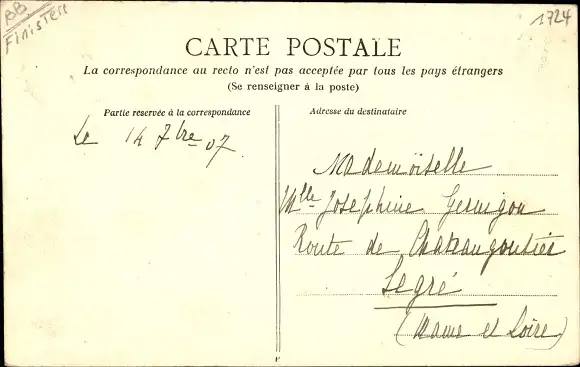 BB
FINISTERE
1724
CARTE POSTALE
La correspondance au recto n'est pas acceptée par tous les pays étrangers
(Se renseigner à la poste)
Partie réservée à la correspondance
Adresse du destinataire
Le 14 7bre 07
Mademoiselle
Mlle Joséphine
Route de Chateaugontier
Segré
(Maine et Loire)